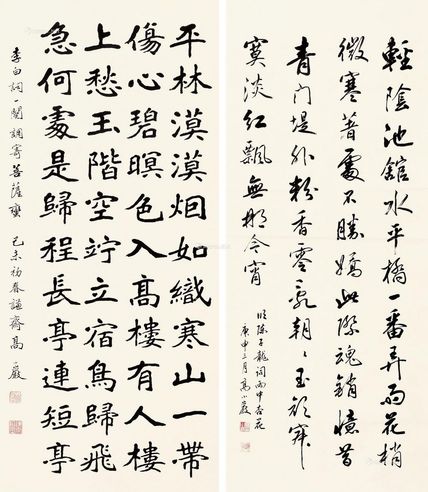 輕陰池館水平橋一番弄雨花梢
微寒著處不勝嬌此際魂銷憶昔
青門堤外粉香零亂朝〻玉顏寂
寞淡紅飄無那今宵
陳子龍詞雨中杏花
庚申三月高小巖
平林漠漠烟如織寒山一帶
傷心碧暝色入高樓有人樓
上愁玉階空竚立宿鳥歸飛
急何處是歸程長亭連短亭
李白詞一闋調寄菩薩蠻 己未初春謙齋高巖